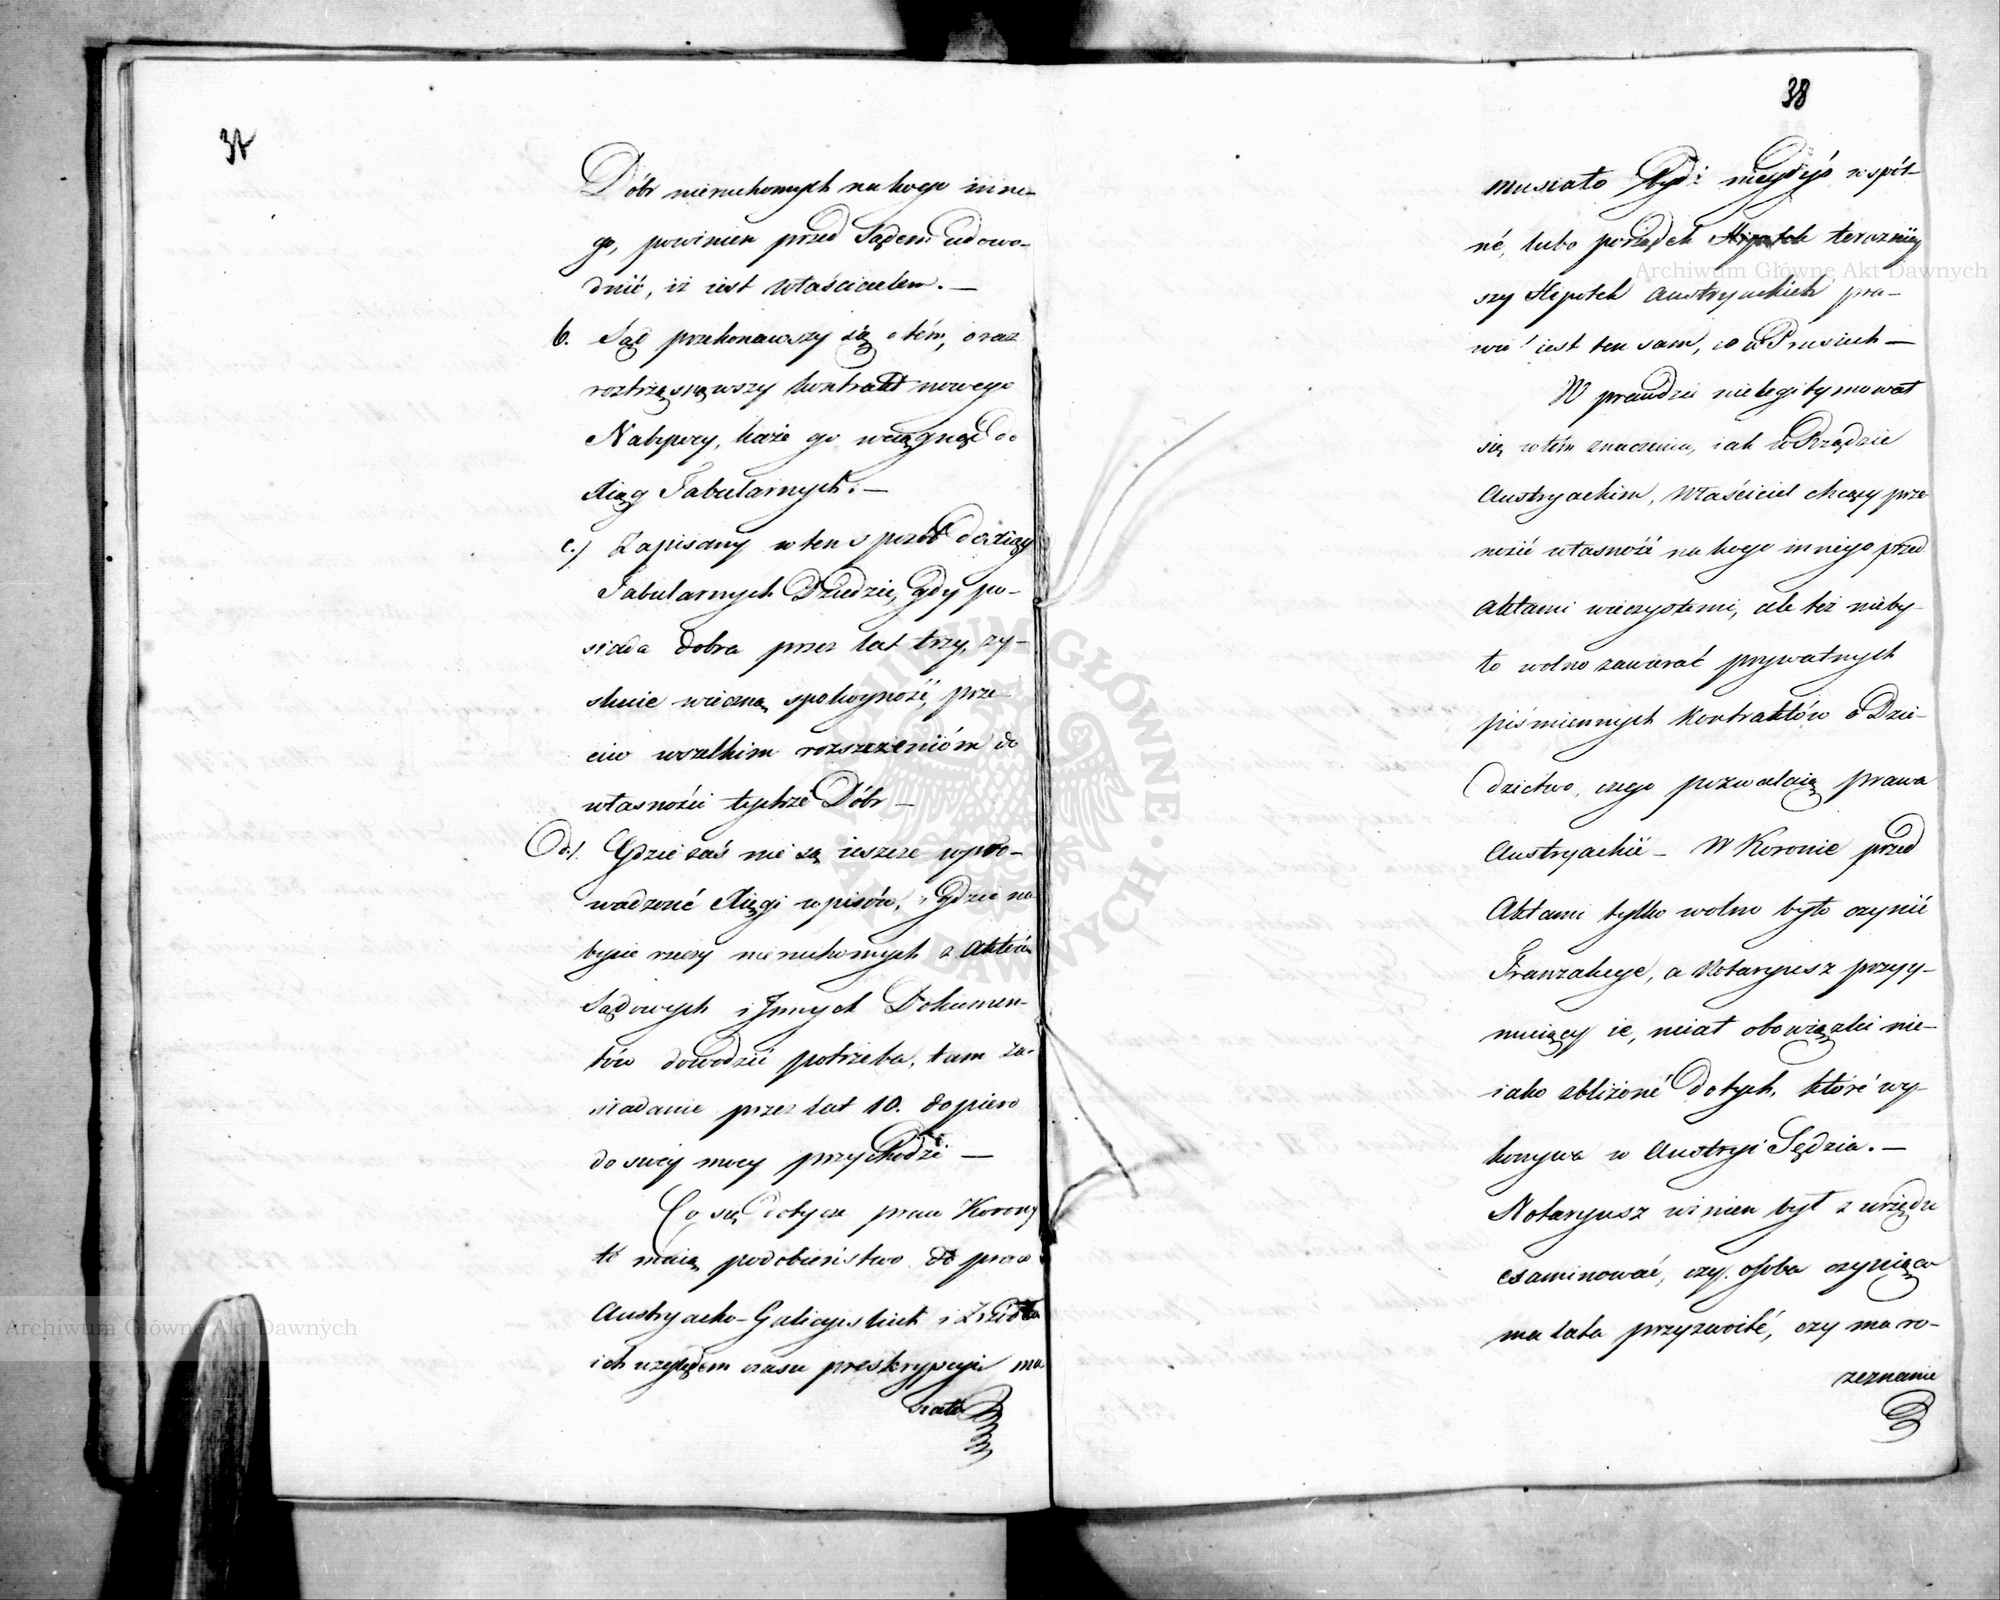 37
Dóbr nieruchomych na kogo inne-
go, powinien przed Sądem udowo-
dnić, iż iest właścicielem. —
b. Sąd przekonawszy się o tém, oraz
roztrząsnąwszy kontrakt nowego
Nabywcy, każe go wciągnąć do
Xiąg Tabularnych. —
c.) Zapisany w ten sposób do xiąg
Tabularnych Dziedzic, gdy po-
siada dobra przez lat trzy, zy-
skuie wieczną spokoyność, prze-
ciw wszelkim rozszczenióm do
własności tychże Dóbr —
d.) Gdzie zaś nie są ieszcze wpro-
wadzoné Xięgi wpisów, i gdzie na
bycie rzeczy nieruchomych z Aktów
Sądowych i Innych Dokumen-
tów dowodzić potrzeba, tam za-
siadanie przez lat 10. dopiero
do swey mocy przychodzi —
Co się dotycze praw Korony
té maią podobieństwo do praw
Austryacko-Galicyiskich i źródło
ich względem czasu preskrypcyi mu
siało
38
musiało bydź niegdyś wspól-
né, lubo porządek terazniey
szy Hypotek Austryackich pra-
wie iest ten sam, co w Prusiech —
W prawdzie nielegitymował
się w tém znaczeniu, iak w Rządzie
Austryackim, Właściciel chcący prze
nosić własność na kogo innego przed
Aktami wieczystemi, ale też nieby-
ło wolno zawierać prywatnych
piśmiennych Kontraktów o Dzie-
dzictwo, czego pozwalaią prawa
Austryackié — W Koronie przed
Aktami tylko wolno było czynić
Tranzakcye, a Notaryusz przyy-
muiący ie, miał obowiązki nie-
iako zbliżoné do tych, któré wy-
konywa w Austryi Sędzia. —
Notaryusz winien był z urzędu
examinować, czy osoba czyniąca
ma lata przyzwoité, czy ma ro-
zeznanie
Archiwum Główne Akt Dawnych
Archiwum Główne Akt Dawnych
ARCHIWUM GŁÓWNE · AKT DAWNYCH ·